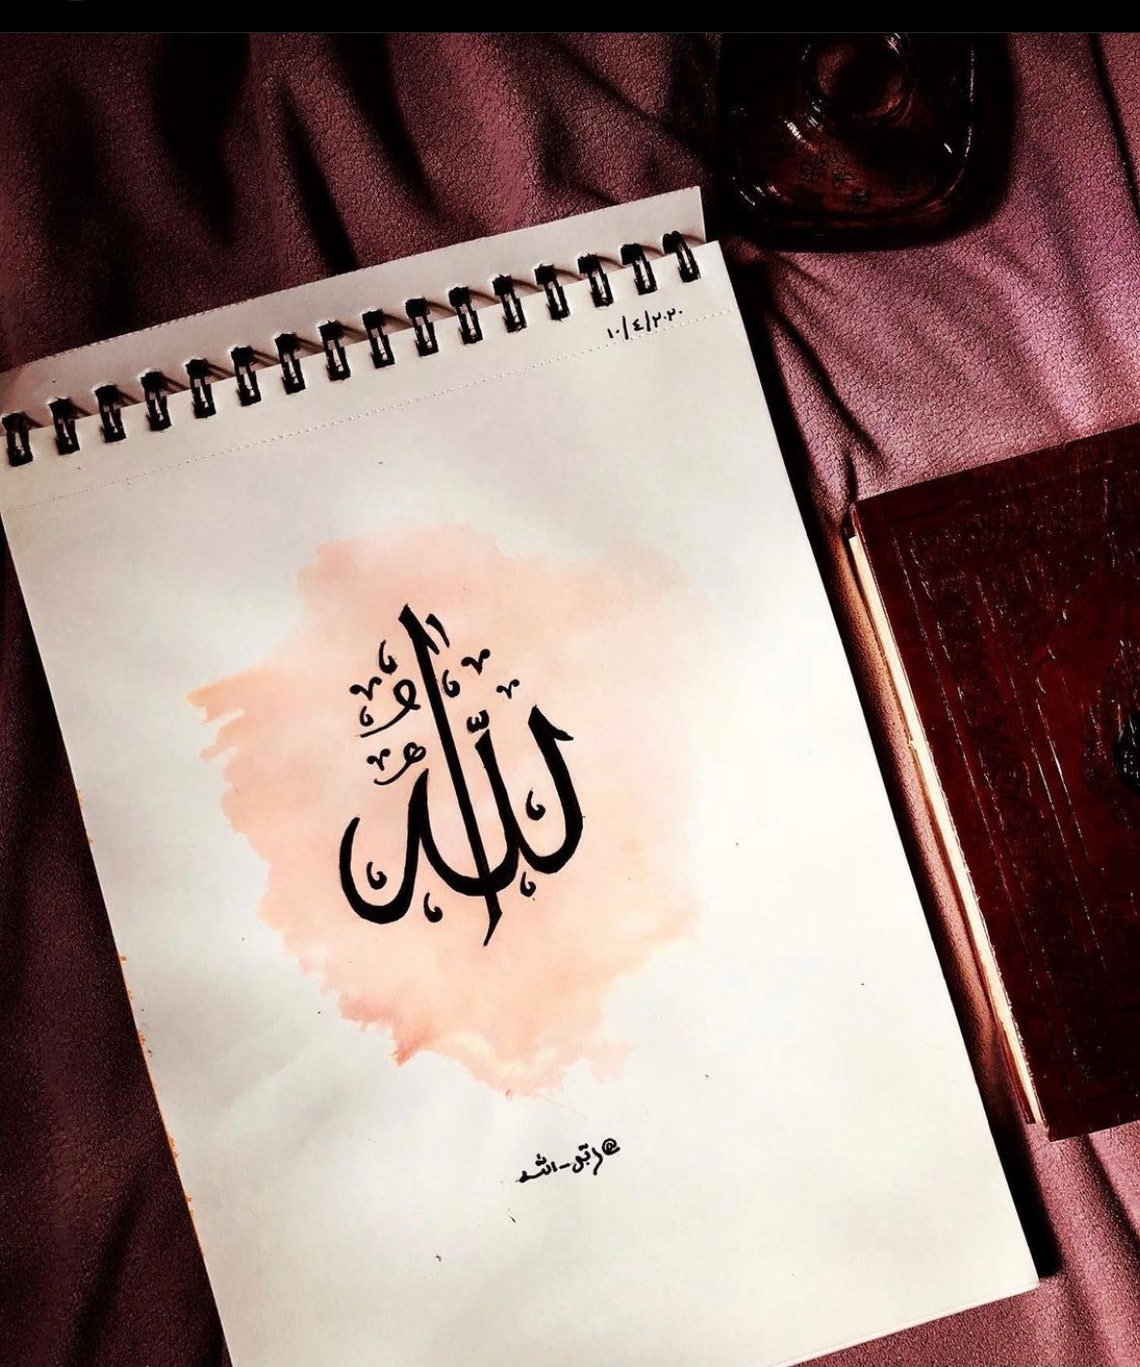 ١٠/٤/٢٠٢٠
الله